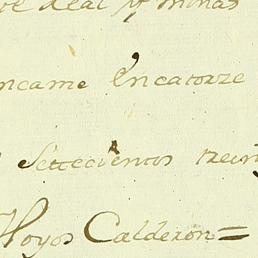 de Real y minas
ncame en catorze
Settecientos trein
Hoyos Calderon =